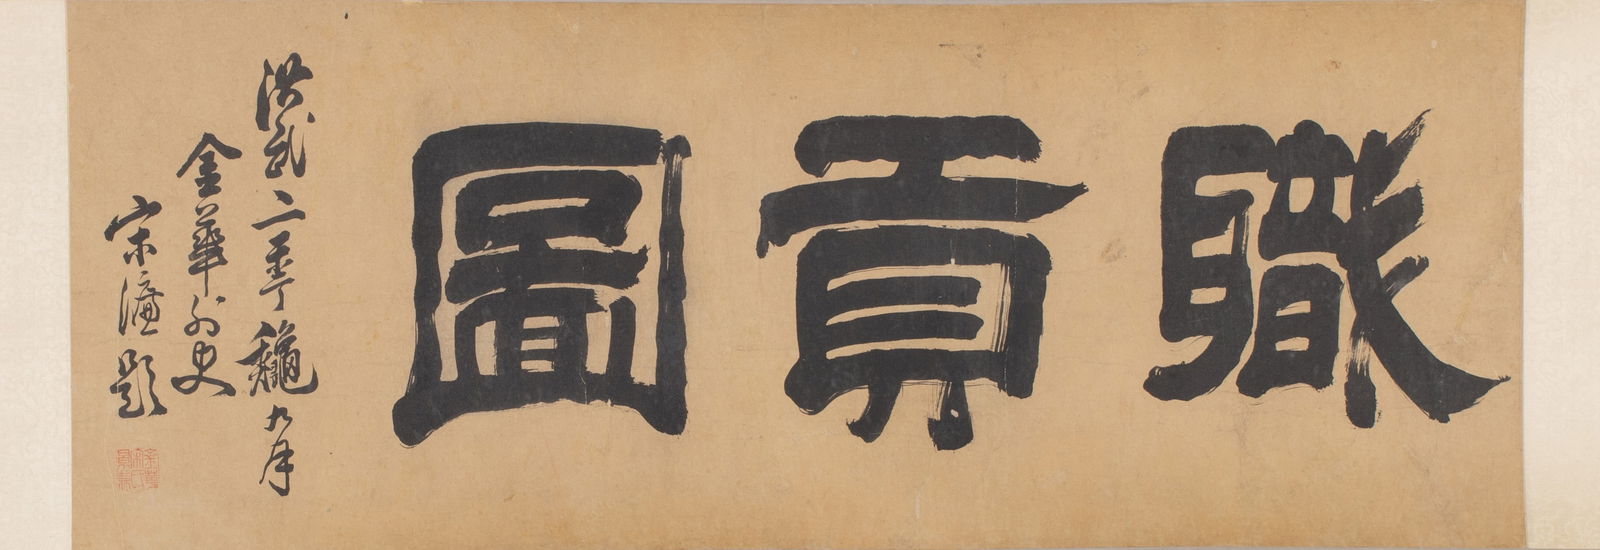 職貢圖
洪武二年龝九月
金華外史
宋濂題